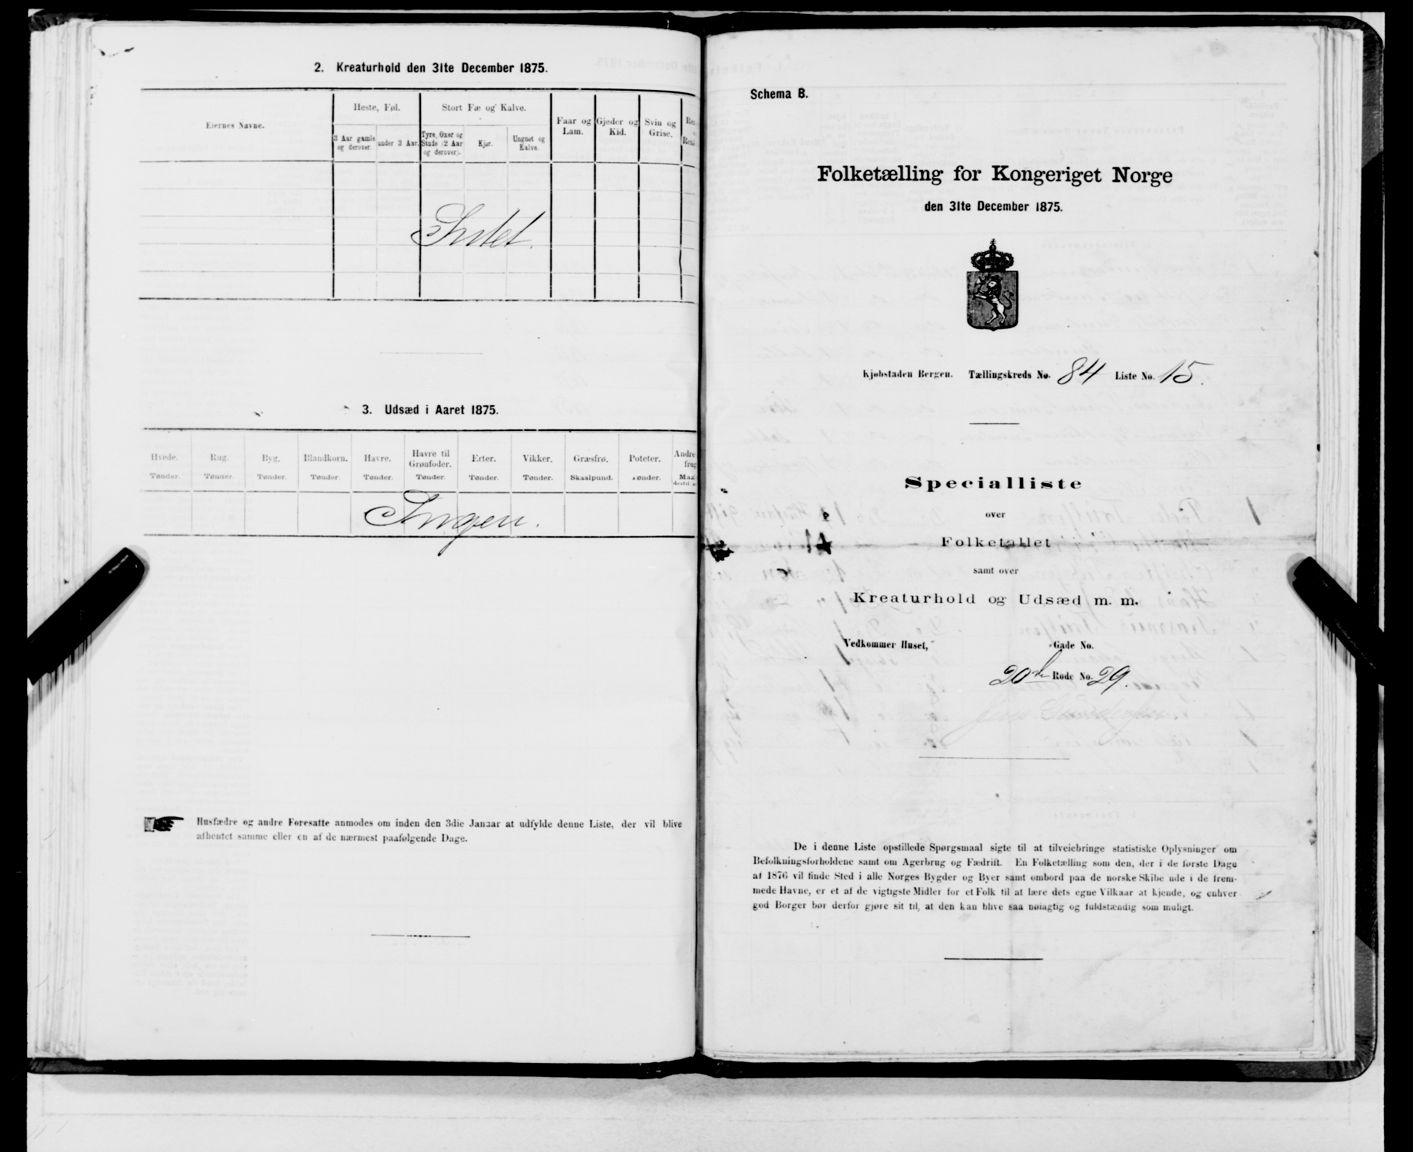 2. Kreaturhold den 31te December 1875.
Eiernes Navne.
Heste, Føl.
Stort Fæ og Kalve.
Faar og Lam.
Gjeder og Kid.
Svin og Grise.
3 Aar gamle og derover.
under 3 Aar.
Tyre, Oxer og Stude (2 Aar og derover).
Kjør.
Ungnet og Kalve.
Intet.
3. Udsæd i Aaret 1875.
Hvede.
Rug.
Byg.
Blandkorn.
Havre.
Havre til Grønfoder.
Erter.
Vikker.
Græsfrø.
Poteter.
Tønder.
Tønder.
Tønder.
Tønder.
Tønder.
Tønder.
Tønder.
Tønder.
Skaalpund.
Tønder.
Ingen.
Husfædre og andre Foresatte anmodes om inden den 3die Januar at udfylde denne Liste, der vil blive
afhentet samme eller en af de nærmest paafølgende Dage.
Schema B.
Folketælling for Kongeriget Norge
den 31te December 1875.
Kjøbstaden Bergen. Tællingskreds No. 84 Liste No. 15.
Specialliste
over
Folketallet
samt over
Kreaturhold og Udsæd m. m.
Vedkommer Huset, Gade No.
20de Rode No. 29.
De i denne Liste opstillede Spørgsmaal sigte til at tilveiebringe statistiske Oplysninger om
Befolkningsforholdene samt om Agerbrug og Fædrift. En Folketælling som den, der i de første Dage
af 1876 vil finde Sted i alle Norges Bygder og Byer samt ombord paa de norske Skibe ude i de frem-
mede Havne, er et af de vigtigste Midler for et Folk til at lære dets egne Vilkaar at kjende, og enhver
god Borger bør derfor gjøre sit til, at den kan blive saa nøiagtig og fuldstændig som muligt.